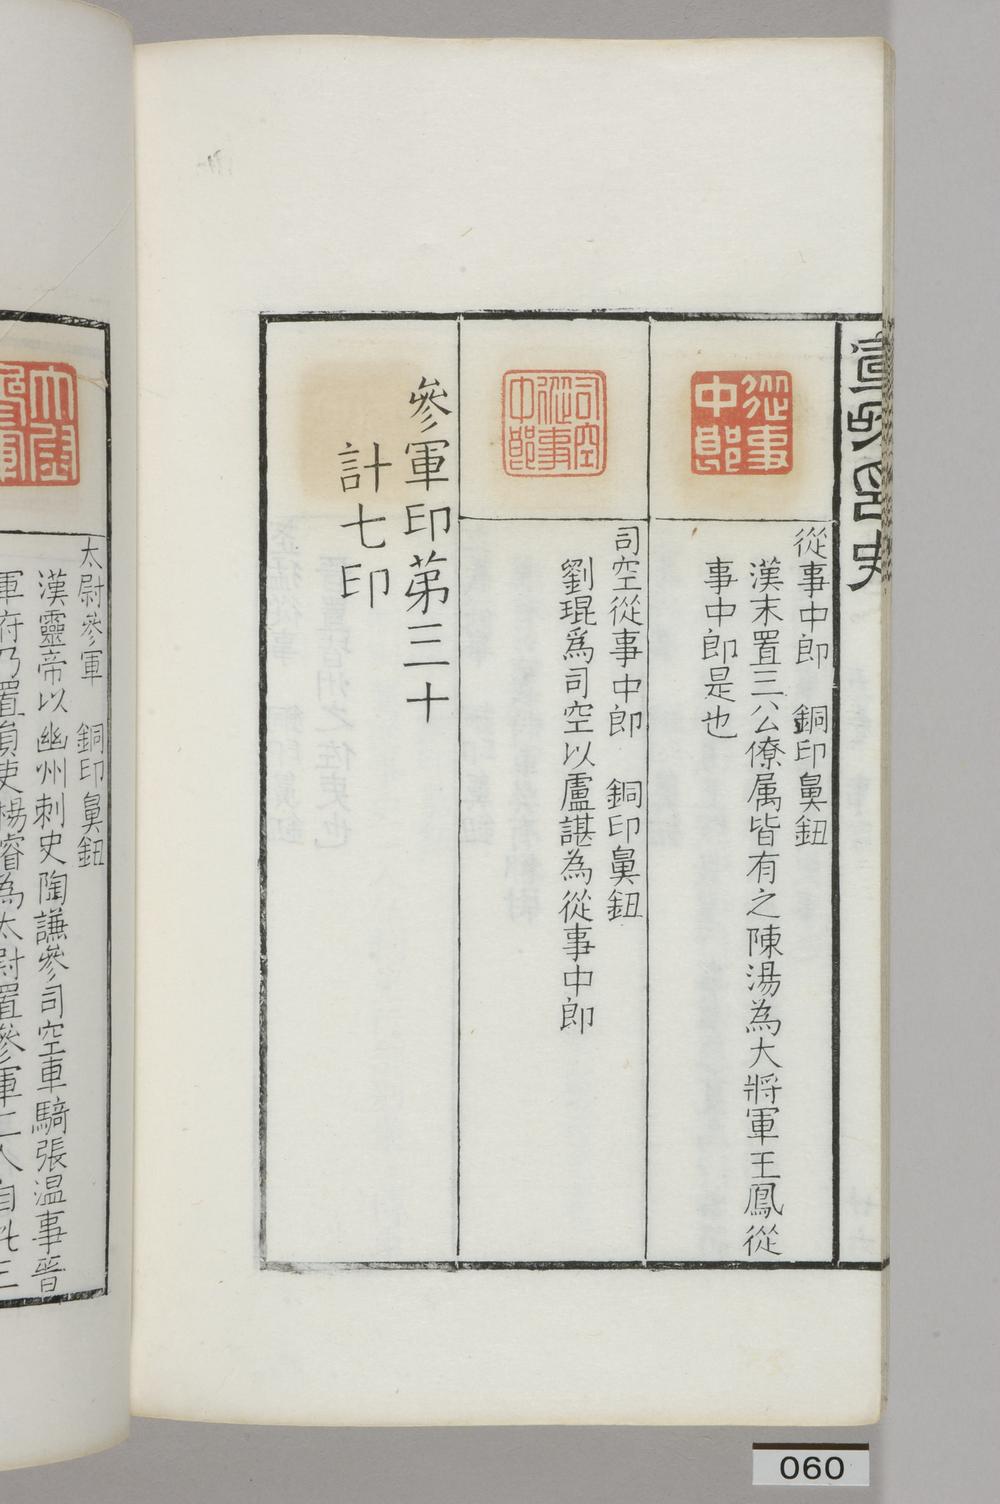 宣和印史
從事中郎
從事中郎　銅印鼻鈕
漢末置三公僚属皆有之陳湯為大將軍王鳳從
事中郎是也
司空從事中郎
司空從事中郎　銅印鼻鈕
劉琨爲司空以盧諶為從事中郎
參軍印第三十
計七印
太尉參軍
太尉參軍　銅印鼻鈕
漢靈帝以幽州刺史陶謙參司空車騎張温事晉
軍府乃置員吏楊睿為太尉置參軍二人自此三
060